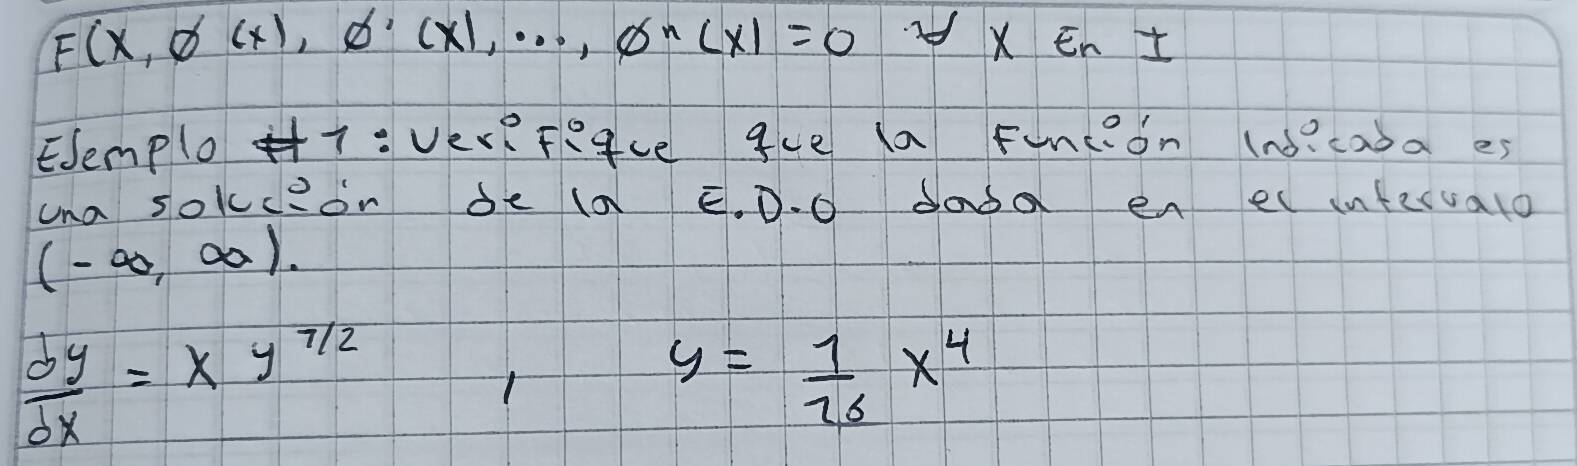 F(x, ø(x), ø'(x), ..., øⁿ(x)) = 0 ∀ x En I
Ejemplo #1: Verifique que la función indicada es
una solución de la E.D.O dada en el intervalo
(-∞, ∞).
dy/dx = x y^1/2 , y = 1/16 x^4